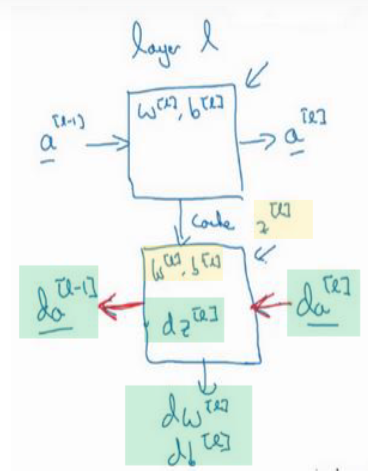 layer l
w^[l], b^[l]
a^[l-1] a^[l]
cache z^[l]
w^[l], b^[l]
da^[l-1] da^[l]
dz^[l]
dw^[l]
db^[l]